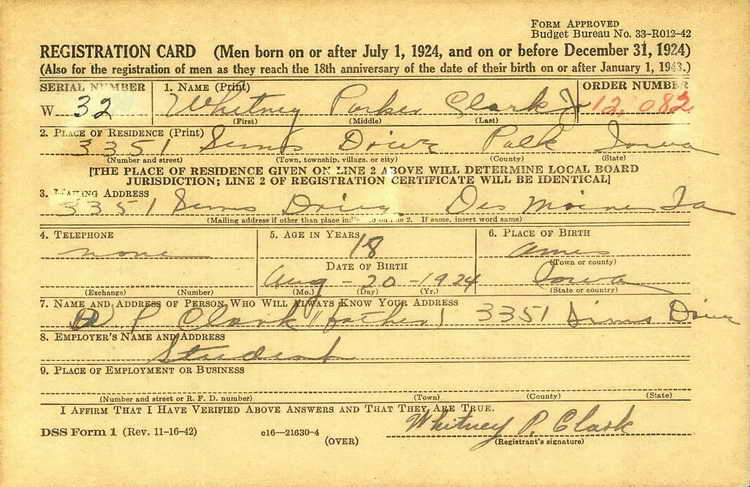 FORM APPROVED
Budget Bureau No. 33-R012-42
REGISTRATION CARD (Men born on or after July 1, 1924, and on or before December 31, 1924)
(Also for the registration of men as they reach the 18th anniversary of the date of their birth on or after January 1, 1943.)
SERIAL NUMBER 1. NAME (Print) ORDER NUMBER
W 32 Whitney Parker Clark Jr 12,082
(First) (Middle) (Last)
2. PLACE OF RESIDENCE (Print)
3351 Sims Drive Polk Iowa
(Number and street) (Town, township, village, or city) (County) (State)
[THE PLACE OF RESIDENCE GIVEN ON LINE 2 ABOVE WILL DETERMINE LOCAL BOARD
JURISDICTION; LINE 2 OF REGISTRATION CERTIFICATE WILL BE IDENTICAL]
3. MAILING ADDRESS
3351 Sims Drive Des Moines Ia
(Mailing address if other than place indicated on line 2. If same, insert word same)
4. TELEPHONE 5. AGE IN YEARS 6. PLACE OF BIRTH
none 18 Ames
DATE OF BIRTH (Town or county)
Aug-20-1924 Iowa
(Exchange) (Number) (Mo.) (Day) (Yr.) (State or country)
7. NAME AND ADDRESS OF PERSON WHO WILL ALWAYS KNOW YOUR ADDRESS
W. P. Clark (father) 3351 Sims Drive
8. EMPLOYER'S NAME AND ADDRESS
Student
9. PLACE OF EMPLOYMENT OR BUSINESS
(Number and street or R. F. D. number) (Town) (County) (State)
I AFFIRM THAT I HAVE VERIFIED ABOVE ANSWERS AND THAT THEY ARE TRUE.
DSS Form 1 (Rev. 11-16-42) c16—21630-4 Whitney P. Clark
(OVER) (Registrant's signature)